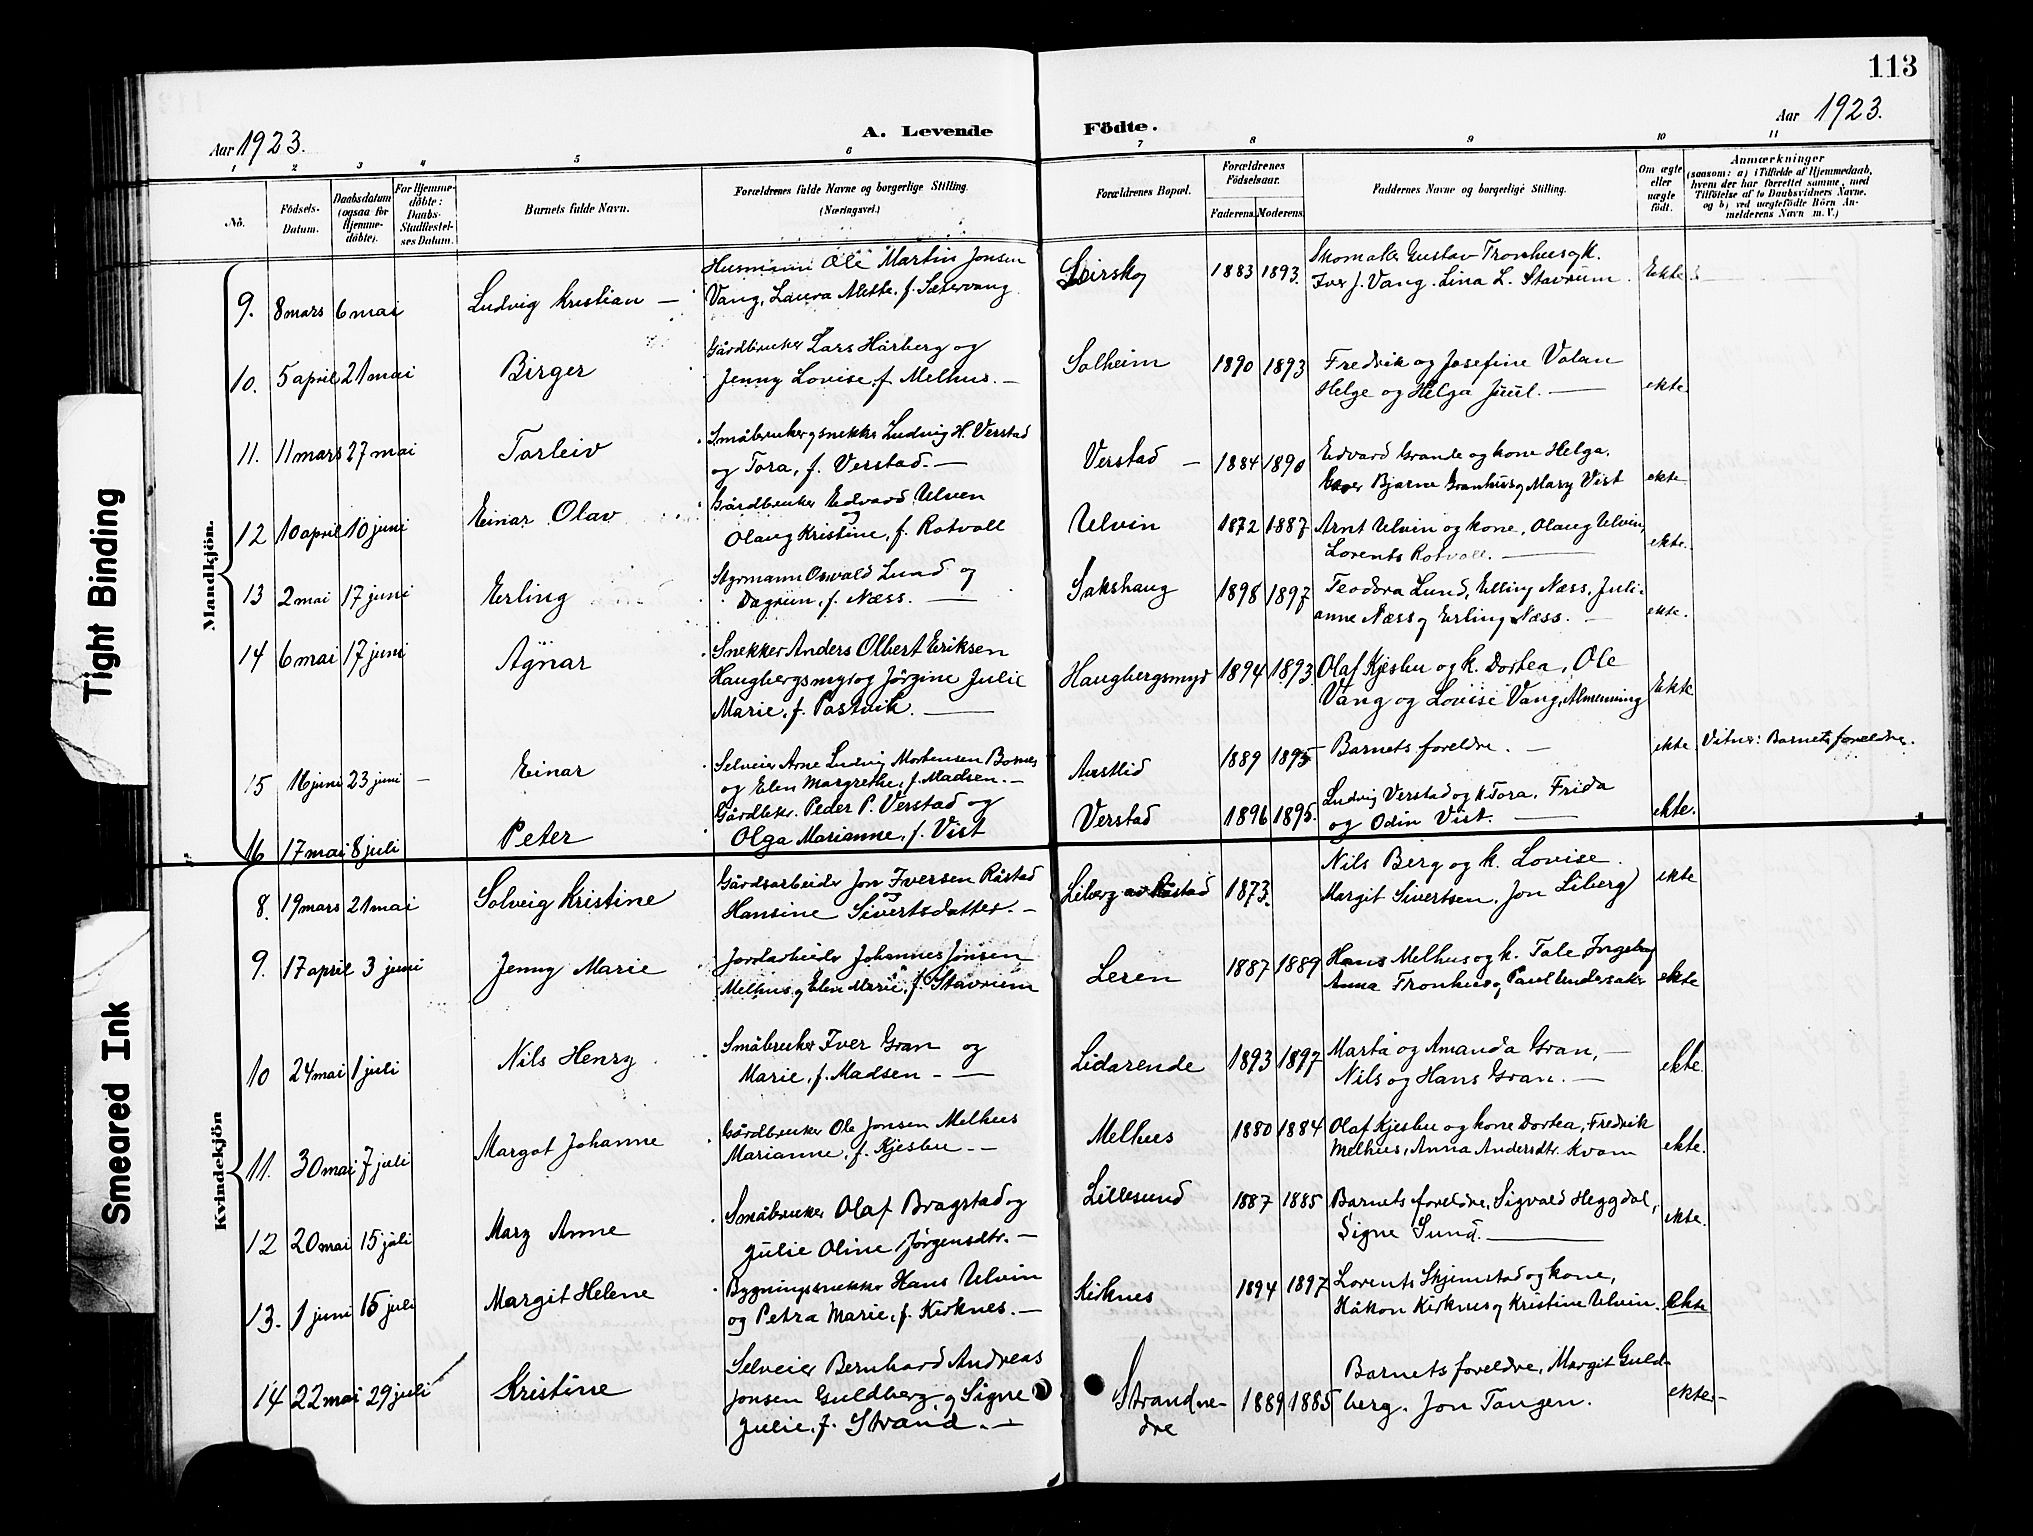 113
Aar 1923.
A. Levende Födte.
Aar 1923.
1 2 3 4 5 6 7 8 9 10 11
Nö.
Födsels-Datum.
Daabsdatum (ogsaa for Hjemme-döbte).
For Hjemme-döbte: Daabs-Stadfæstel-ses Datum.
Barnets fulde Navn.
Forældrenes fulde Navne og borgerlige Stilling.
(Næringsvei.)
Forældrenes Bopæl.
Forældrenes Födselsaar.
Faderens. Moderens.
Faddernes Navne og borgerlige Stilling.
Om ægte eller uægte födt.
Anmærkninger
(saasom: a) i Tilfælde af Hjemmedaab,
hvem der har forrettet samme, med
Tilföielse af to Daabsvidners Navne.
og b) ved uægtefödte Börn An-
melderens Navn m. V.)
Mandkjön.
9. 8 mars 6 mai Ludvig Kristian —
Husmann Ole Martin Jonsen
Vang, Laura Mette, f. Sætervang
Leirskog 1883 1893.
Skomaker Gustav Tronhus og k.
Iver J. Vang. Lina L. Stavrum.
Ekte
10. 5 april 21 mai Birger
Gårdbruker Lars Hårberg og
Jenny Lovise f. Melhus. —
Solheim 1890 1893
Fredrik og Josefine Volan
Helge og Helga Juul. —
ekte.
11. 11 mars 27 mai Torleiv
Småbruker og snekker Ludvig H. Verstad
og Tora, f. Verstad. —
Verstad — 1884 1890
Edvard Grande og kone Helga.
Bjarne Granhus og Mary Vist
ekte
12 10 april 10 juni Einar Olav
Gårdbruker Edvard Ulven
og
Olaug Kristine, f. Rotvoll
Ulvin 1872 1887
Arnt Ulvin og kone, Olaug Ulvin,
Lorents Rotvoll. —
ekte.
13 2 mai 17 juni Erling
Styrmann Osvald Lund og
Dagrun, f. Næss. —
Sakshaug 1898 1897
Teodora Lund, Elling Næss, Juli-
anne Næss og Erling Næss. —
ekte.
14 6 mai 17 juni Agnar
Snekker Anders Olbert Eriksen
Haugbergsmyr og Jørgine Julie
Marie, f. Postvik. —
Haugbergsmyr 1894 1893.
Olaf Kjesbu og k. Dortea, Ole
Vang og Lovise Vang, Almenning
Ekte
15 16 juni 23 juni — Einar
Selveier Arne Ludvig Mortensen Bomes
og Elen Margrethe, f. Madsen. —
Aastlid 1889 1895
Barnets foreldre. —
ekte Vitner: Barnets foreldre.
16 17 mai 8 juli Peter
Gårdbkr. Peder P. Verstad og
Olga Marianne, f. Vist
Verstad 1896 1895.
Ludvig Verstad og k Tora, Frida
og Odin Vist. —
ekte.
Kvindekjön
8. 19 mars 21 mai Solveig Kristine
Gårdsarbeider Jon Iversen Råstad
og
Hansine Sivertsdatter. —
Liberg av Råstad 1873.
Nils Berg og k. Lovise.
Margit Sivertsen, Jon Liberg
ekte
9. 17 april 3 juni Jenny Marie
Jordarbeider Johannes Jonsen
Melhus og Elen Marie, f. Stavrum
Leren 1887 1889
Hans Melhus og k. Tale Ingeborg
Anna Fronhus og Paul Undersaker
ekte
10 24 mai 1 juli Nils Henry
Småbruker Iver Gran og
Marie, f. Madsen - —
Lidarende 1893 1897
Marta og Amanda Gran, —
Nils og Hans Gran. —
ekte.
11. 30 mai 7 juli Margot Johanne
Gårdbruker Ole Jonsen Melhus
Marianne, f. Kjesbu. —
Melhus 1880 1884
Olaf Kjesbu og kone Dortea, Fredrik
Melhus, Anna Andersdtr. Kvam
ekte.
12 20 mai 15 juli Mary Anne
Småbruker Olaf Bragstad og
Julie Oline Jørgensdtr. —
Lillesund 1887 1885
Barnets foreldre, Sigvald Heggdal,
Signe Sund. —
ekte.
13. 1 juni 15 juli Margit Helene
Bygningssnekker Hans Ulvin
og Petra Marie, f. Kirknes. —
Kirknes 1894 1897
Lorents Skjemstad og kone,
Håkon Kirknes og Kristine Ulvin.
ekte
14 22 mai 29 juli Kristine
Selveier Bernhard Andreas
Jonsen Guldberg og Signe
Julie, f. Strand. —
Strandne-
dre
1889 1885
Barnets foreldre, Margit Guld-
berg. Jon Tangen.
ekte —
Tight Binding
Smeared Ink